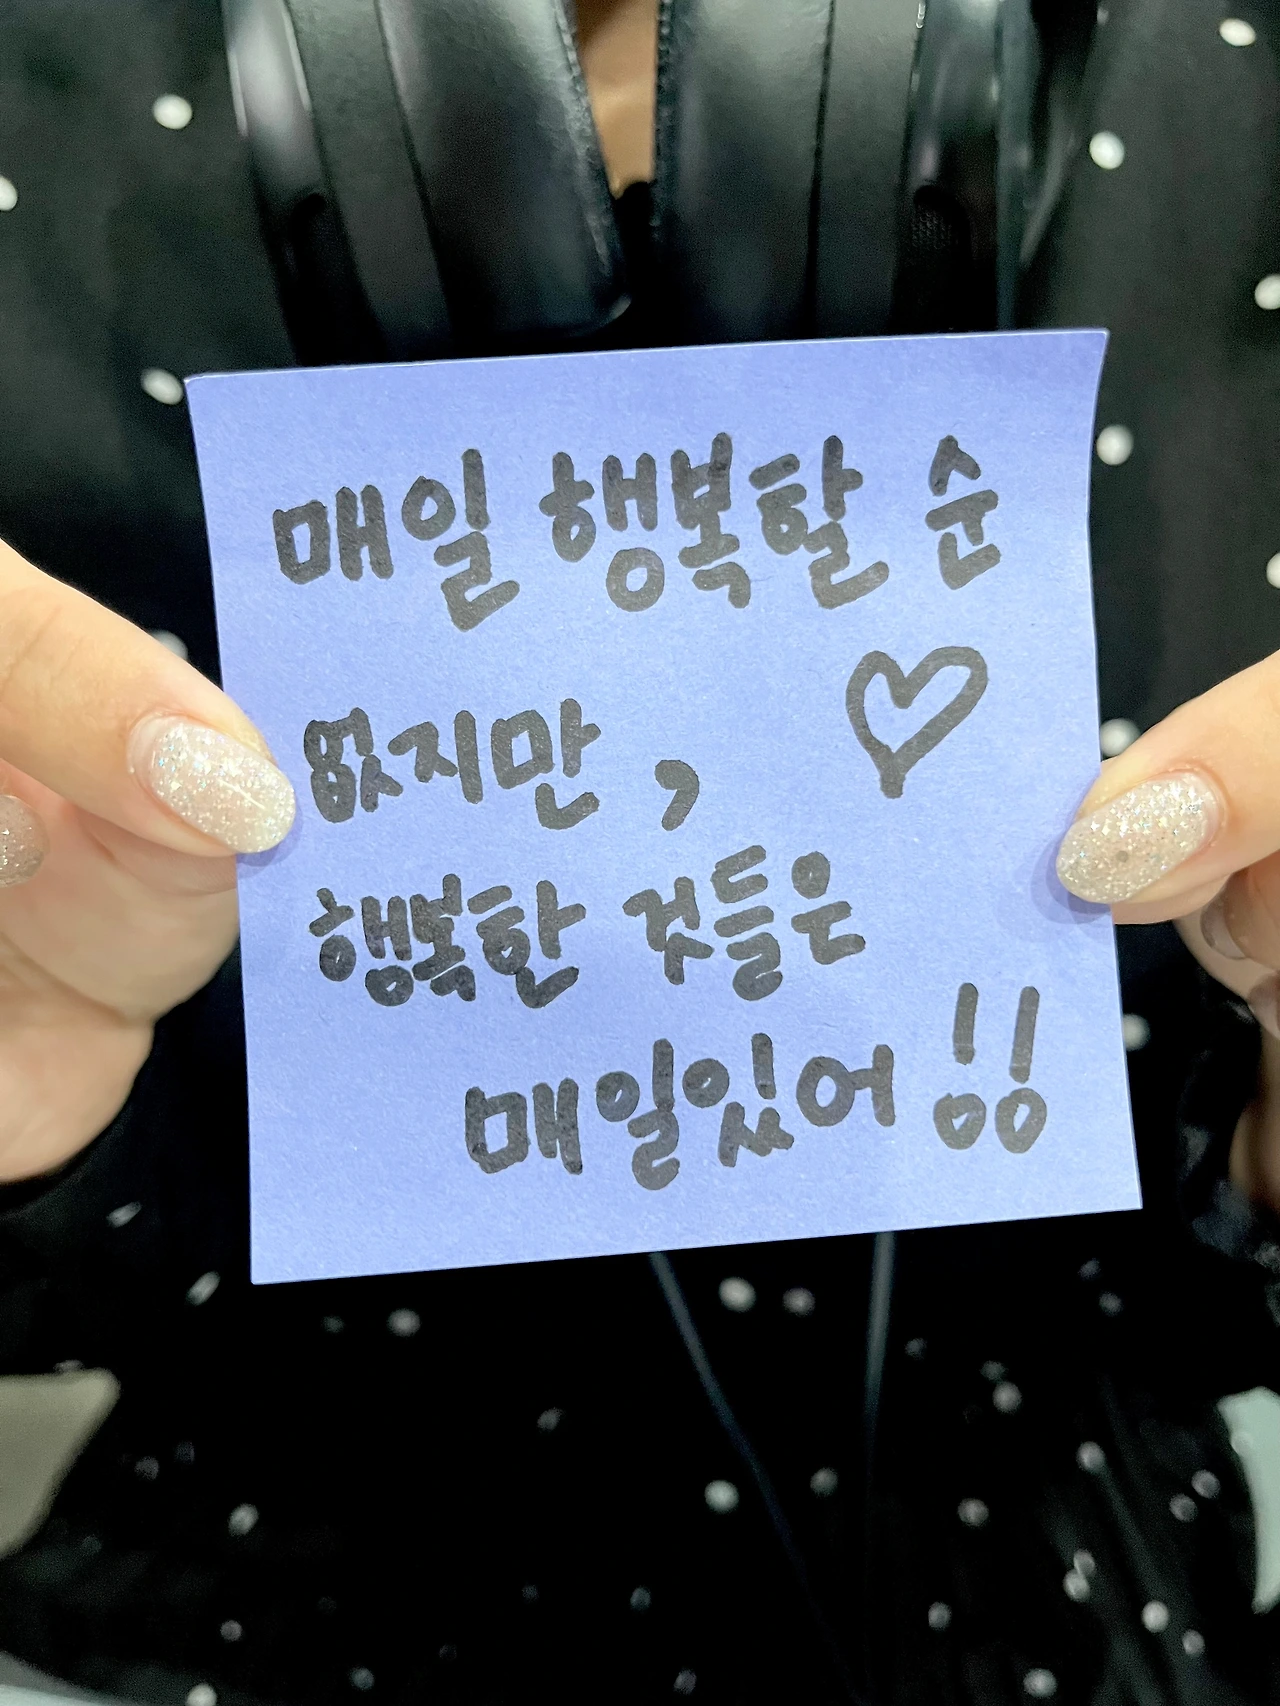 매일 행복할 순
없지만, ♡
행복한 것들은
매일있어!!